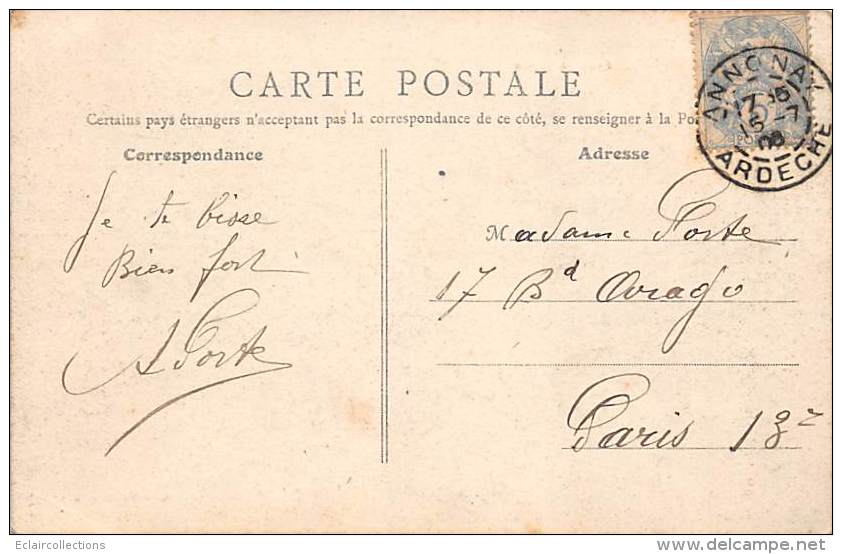 CARTE POSTALE
Certains pays étrangers n'acceptant pas la correspondance de ce côté, se renseigner à la Po
Correspondance
Je te bise
Bien fort
A Porte
Adresse
Madame Porte
17 Bd Arago
Paris 13e
ANNONAY
15 -7
08
ARDECHE
Eclaircollections
www.delcampe.net